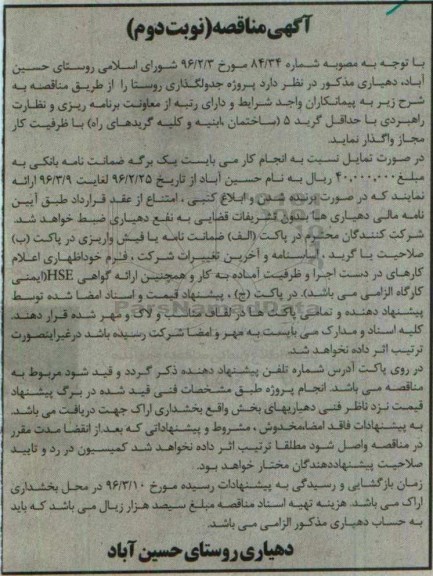 آگهی مناقصه (نوبت دوم)
با توجه به مصوبه شماره ۸۴/۳۴ مورخ ۹۶/۲/۳ شورای اسلامی روستای حسین
آباد، دهیاری مذکور در نظر دارد پروژه جدولگذاری روستا را از طریق مناقصه به
شرح زیر به پیمانکاران واجد شرایط و دارای رتبه از معاونت برنامه ریزی و نظارت
راهبردی با حداقل گرید ۵ (ساختمان ،ابنیه و کلیه گریدهای راه) با ظرفیت کار
مجاز واگذار نماید.
در صورت تمایل نسبت به انجام کار می بایست یک برگه ضمانت نامه بانکی به
مبلغ ۴۰,۰۰۰,۰۰۰ ریال به نام حسین آباد از تاریخ ۹۶/۲/۲۵ لغایت ۹۶/۳/۹ ارائه
نمایند که در صورت برنده شدن و ابلاغ کتبی ، امتناع از عقد قرارداد طبق آیین
نامه مالی دهیاری ها بدون تشریفات قضایی به نفع دهیاری ضبط خواهد شد.
شرکت کنندگان محترم در پاکت (الف) ضمانت نامه یا فیش واریزی در پاکت (ب)
صلاحیت یا گرید ، اساسنامه و آخرین تغییرات شرکت ، فرم خوداظهاری اعلام
کارهای در دست اجرا و ظرفیت آماده به کار و همچنین ارائه گواهی HSE(ایمنی
کارگاه الزامی می باشد). در پاکت (ج) ، پیشنهاد قیمت و اسناد امضا شده توسط
پیشنهاد دهنده و تمامی پاکت ها در لفاف مناسب و لاک و مهر شده قرار دهند.
کلیه اسناد و مدارک می بایست به مهر و امضا شرکت رسیده باشد درغیراینصورت
ترتیب اثر داده نخواهد شد.
در روی پاکت آدرس شماره تلفن پیشنهاد دهنده ذکر گردد و قید شود مربوط به
مناقصه می باشد. انجام پروژه طبق مشخصات فنی قید شده در برگ پیشنهاد
قیمت نزد ناظر فنی دهیاریهای بخش واقع بخشداری اراک جهت دریافت می باشد.
به پیشنهادات فاقد امضا،مخدوش ، مشروط و پیشنهاداتی که بعد از انقضا مدت مقرر
در مناقصه واصل شود مطلقا ترتیب اثر داده نخواهد شد کمیسیون در رد و تایید
صلاحیت پیشنهاددهندگان مختار خواهد بود.
زمان بازگشایی و رسیدگی به پیشنهادات رسیده مورخ ۹۶/۳/۱۰ در محل بخشداری
اراک می باشد. هزینه تهیه اسناد مناقصه مبلغ سیصد هزار ریال می باشد که باید
به حساب دهیاری مذکور الزامی می باشد.
دهیاری روستای حسین آباد